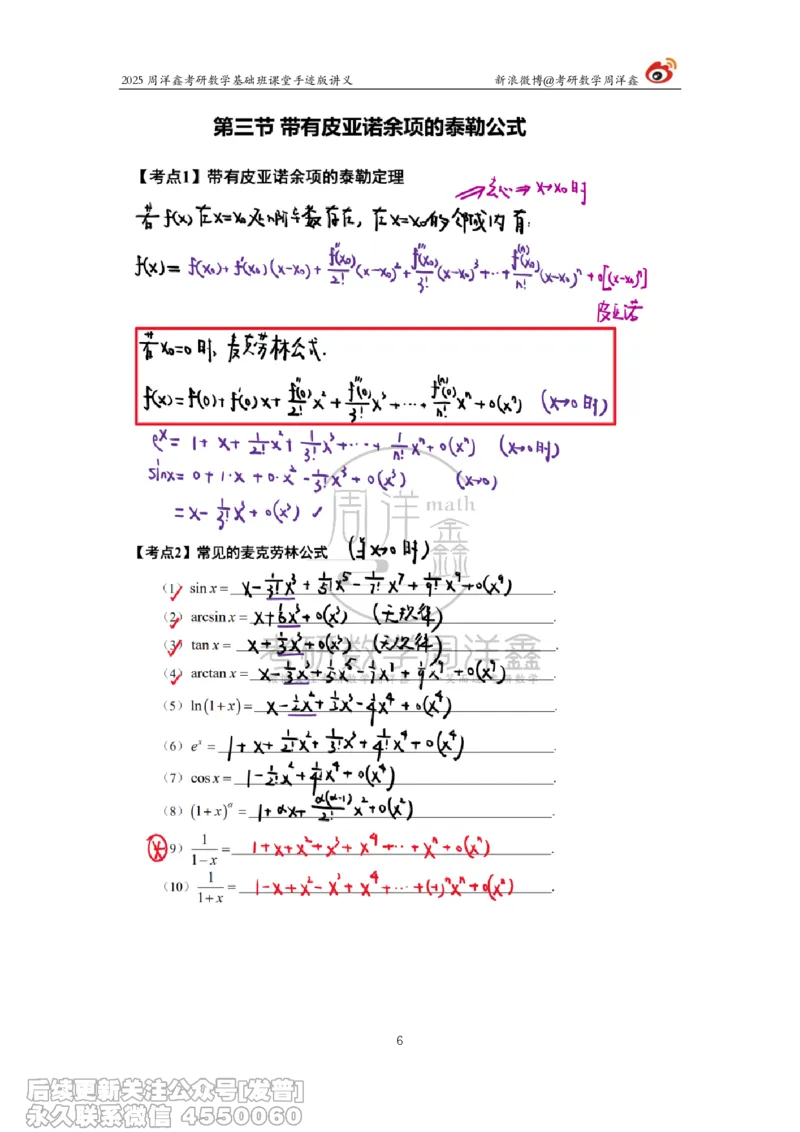 2025 周洋鑫考研数学基础班课堂手迹版讲义 新浪微博@考研数学周洋鑫
第三节 带有皮亚诺余项的泰勒公式
【考点1】带有皮亚诺余项的泰勒定理
⇒ x→x₀时
若 f(x) 在 x=x₀ 处 n阶导数存在, 在 x=x₀ 的邻域内有:
f(x) = f(x₀) + f'(x₀)(x-x₀) + f''(x₀)/2! (x-x₀)² + f'''(x₀)/3! (x-x₀)³ + ⋯ + f⁽ⁿ⁾(x₀)/n! (x-x₀)ⁿ + o[(x-x₀)ⁿ]
皮亚诺
若 x₀=0 时, 麦克劳林公式.
f(x) = f(0) + f'(0)x + f''(0)/2! x² + f'''(0)/3! x³ + ⋯ + f⁽ⁿ⁾(0)/n! xⁿ + o(xⁿ) (x→0 时)
eˣ = 1 + x + 1/2! x² + 1/3! x³ + ⋯ + 1/n! xⁿ + o(xⁿ) (x→0时)
sinx = 0 + 1·x + 0·x² - 1/3! x³ + o(x³) (x→0)
= x - 1/3! x³ + o(x³) ✓
周洋鑫 math
【考点2】常见的麦克劳林公式 (当 x→0 时)
(1) sin x = x - 1/3! x³ + 1/5! x⁵ - 1/7! x⁷ + 1/9! x⁹ + o(x⁹).
(2) arcsin x = x + 1/6 x³ + o(x³) (无规律).
(3) tan x = x + 1/3 x³ + o(x³) (无规律).
考研数学周洋鑫
(4) arctan x = x - 1/3 x³ + 1/5 x⁵ - 1/7 x⁷ + 1/9 x⁹ + o(x⁹).
(5) ln(1+x) = x - 1/2 x² + 1/3 x³ - 1/4 x⁴ + o(x⁴).
(6) eˣ = 1 + x + 1/2! x² + 1/3! x³ + 1/4! x⁴ + o(x⁴).
(7) cos x = 1 - 1/2! x² + 1/4! x⁴ + o(x⁴).
(8) (1+x)^α = 1 + αx + α(α-1)/2! x² + o(x²).
(9) 1/(1-x) = 1 + x + x² + x³ + x⁴ + ⋯ + xⁿ + o(xⁿ).
(10) 1/(1+x) = 1 - x + x² - x³ + x⁴ + ⋯ + (-1)ⁿxⁿ + o(xⁿ).
6
后续更新关注公众号[发普]
永久联系微信 4550060